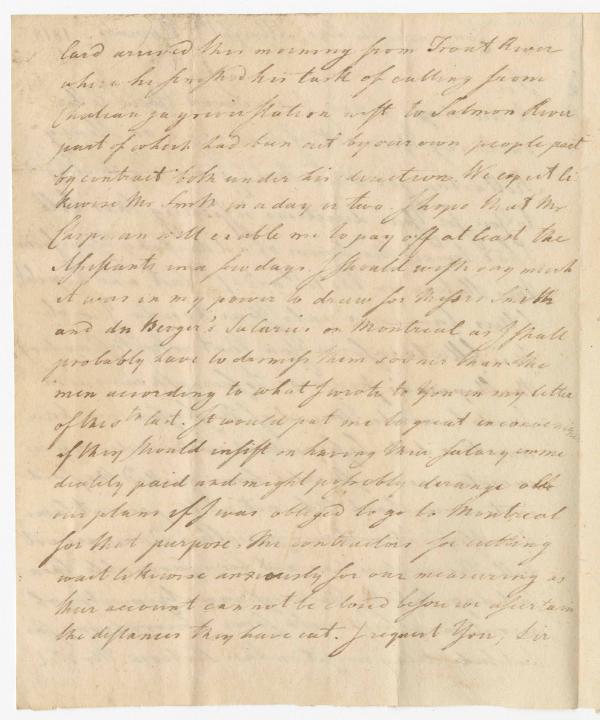 lard arrived this morning from Trout River
where he finished his task of cutting from
Chateaugay river station west to Salmon River
part of which had been cut by our own people part
by contract both under his direction. We expect li
kewise Mr Smith in a day or two. I hope that Mr
will enable me to pay off at least the
Assistants in a few days. I should wish very much
it was in my power to draw for Messrs Smith
and du Berger's Salaries on Montreal as I shall
probably have to dismiss them sooner than the
men according to what I wrote to You in my letter
of the last. It would put me to great inconvenience
if they should insist on having their salary imme
diately paid and might possibly derange all
our plans if I was obliged to go to Montreal
for that purpose. The contractors for cutting
wait likewise anxiously for our measuring as
their account can not be closed before we ascertain
the distances they have cut. I request You, Sir